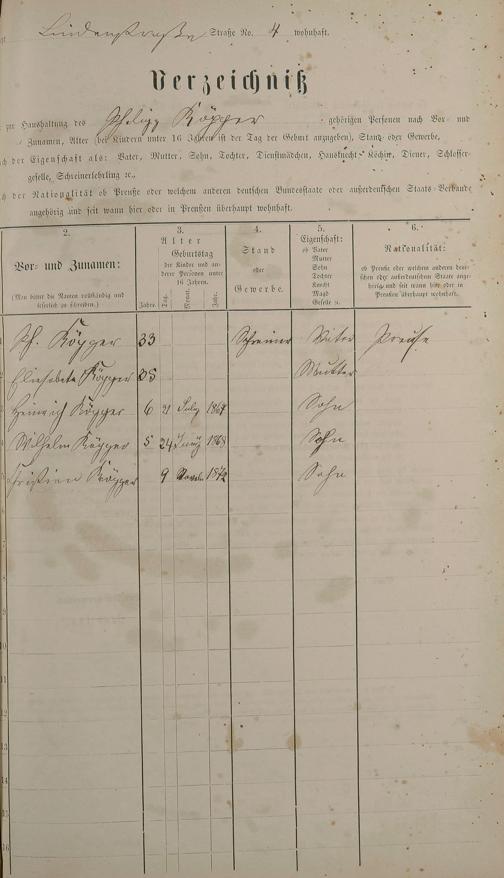 Lindenstraße Straße No. 4 wohnhaft.
Verzeichniß
zur Haushaltung des Philipp Köpper gehörigen Personen nach Vor- und
Zunamen, Alter (bei Kindern unter 16 Jahren ist der Tag der Geburt anzugeben), Stand oder Gewerbe,
nach der Eigenschaft als: Vater, Mutter, Sohn, Tochter, Dienstmädchen, Hausknecht, Köchin, Diener, Schlosser-
geselle, Schreinerlehrling ꝛc.,
nach der Nationalität ob Preuße oder welchem anderen deutschen Bundesstaate oder außerdeutschen Staats-Verbande
angehörig und seit wann hier oder in Preußen überhaupt wohnhaft.
2. 3. 4. 5. 6.
Vor- und Zunamen:
(Man bittet die Namen vollständig und leserlich zu schreiben.)
Alter
Jahre.
Geburtstag
der Kinder und anderer Personen unter 16 Jahren.
Tag. Monat. Jahr.
Stand
oder
Gewerbe.
Eigenschaft:
ob Vater
Mutter
Sohn
Tochter
Knecht
Magd
Geselle ꝛc.
Nationalität:
ob Preuße oder welchem anderen deutschen oder außerdeutschen Staate angehörig und seit wann hier oder in Preußen überhaupt wohnhaft.
Ph. Köpper 33 Schreiner Vater Preuße
Elisabeta Köpper 35 Mutter
Heinrich Köpper 6 21 July 1867 Sohn
Wilhelm Köpper 5 24 Juny 1868 Sohn
Köpper 9 Novem 1872 Sohn
6
7
8
9
10
11
12
13
14
15
16